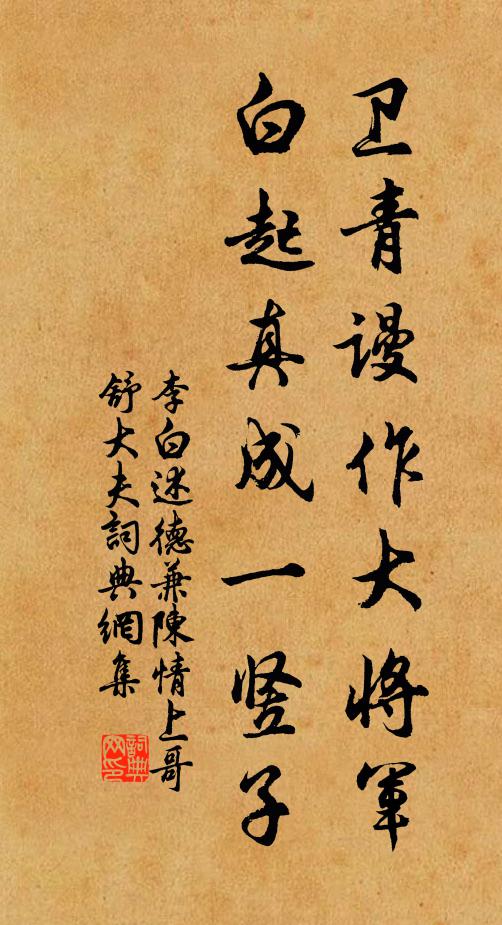 卫青谩作大将军
白起真成一竖子
李白述德兼陳情上哥
舒大夫詞典網集
詞典
网印